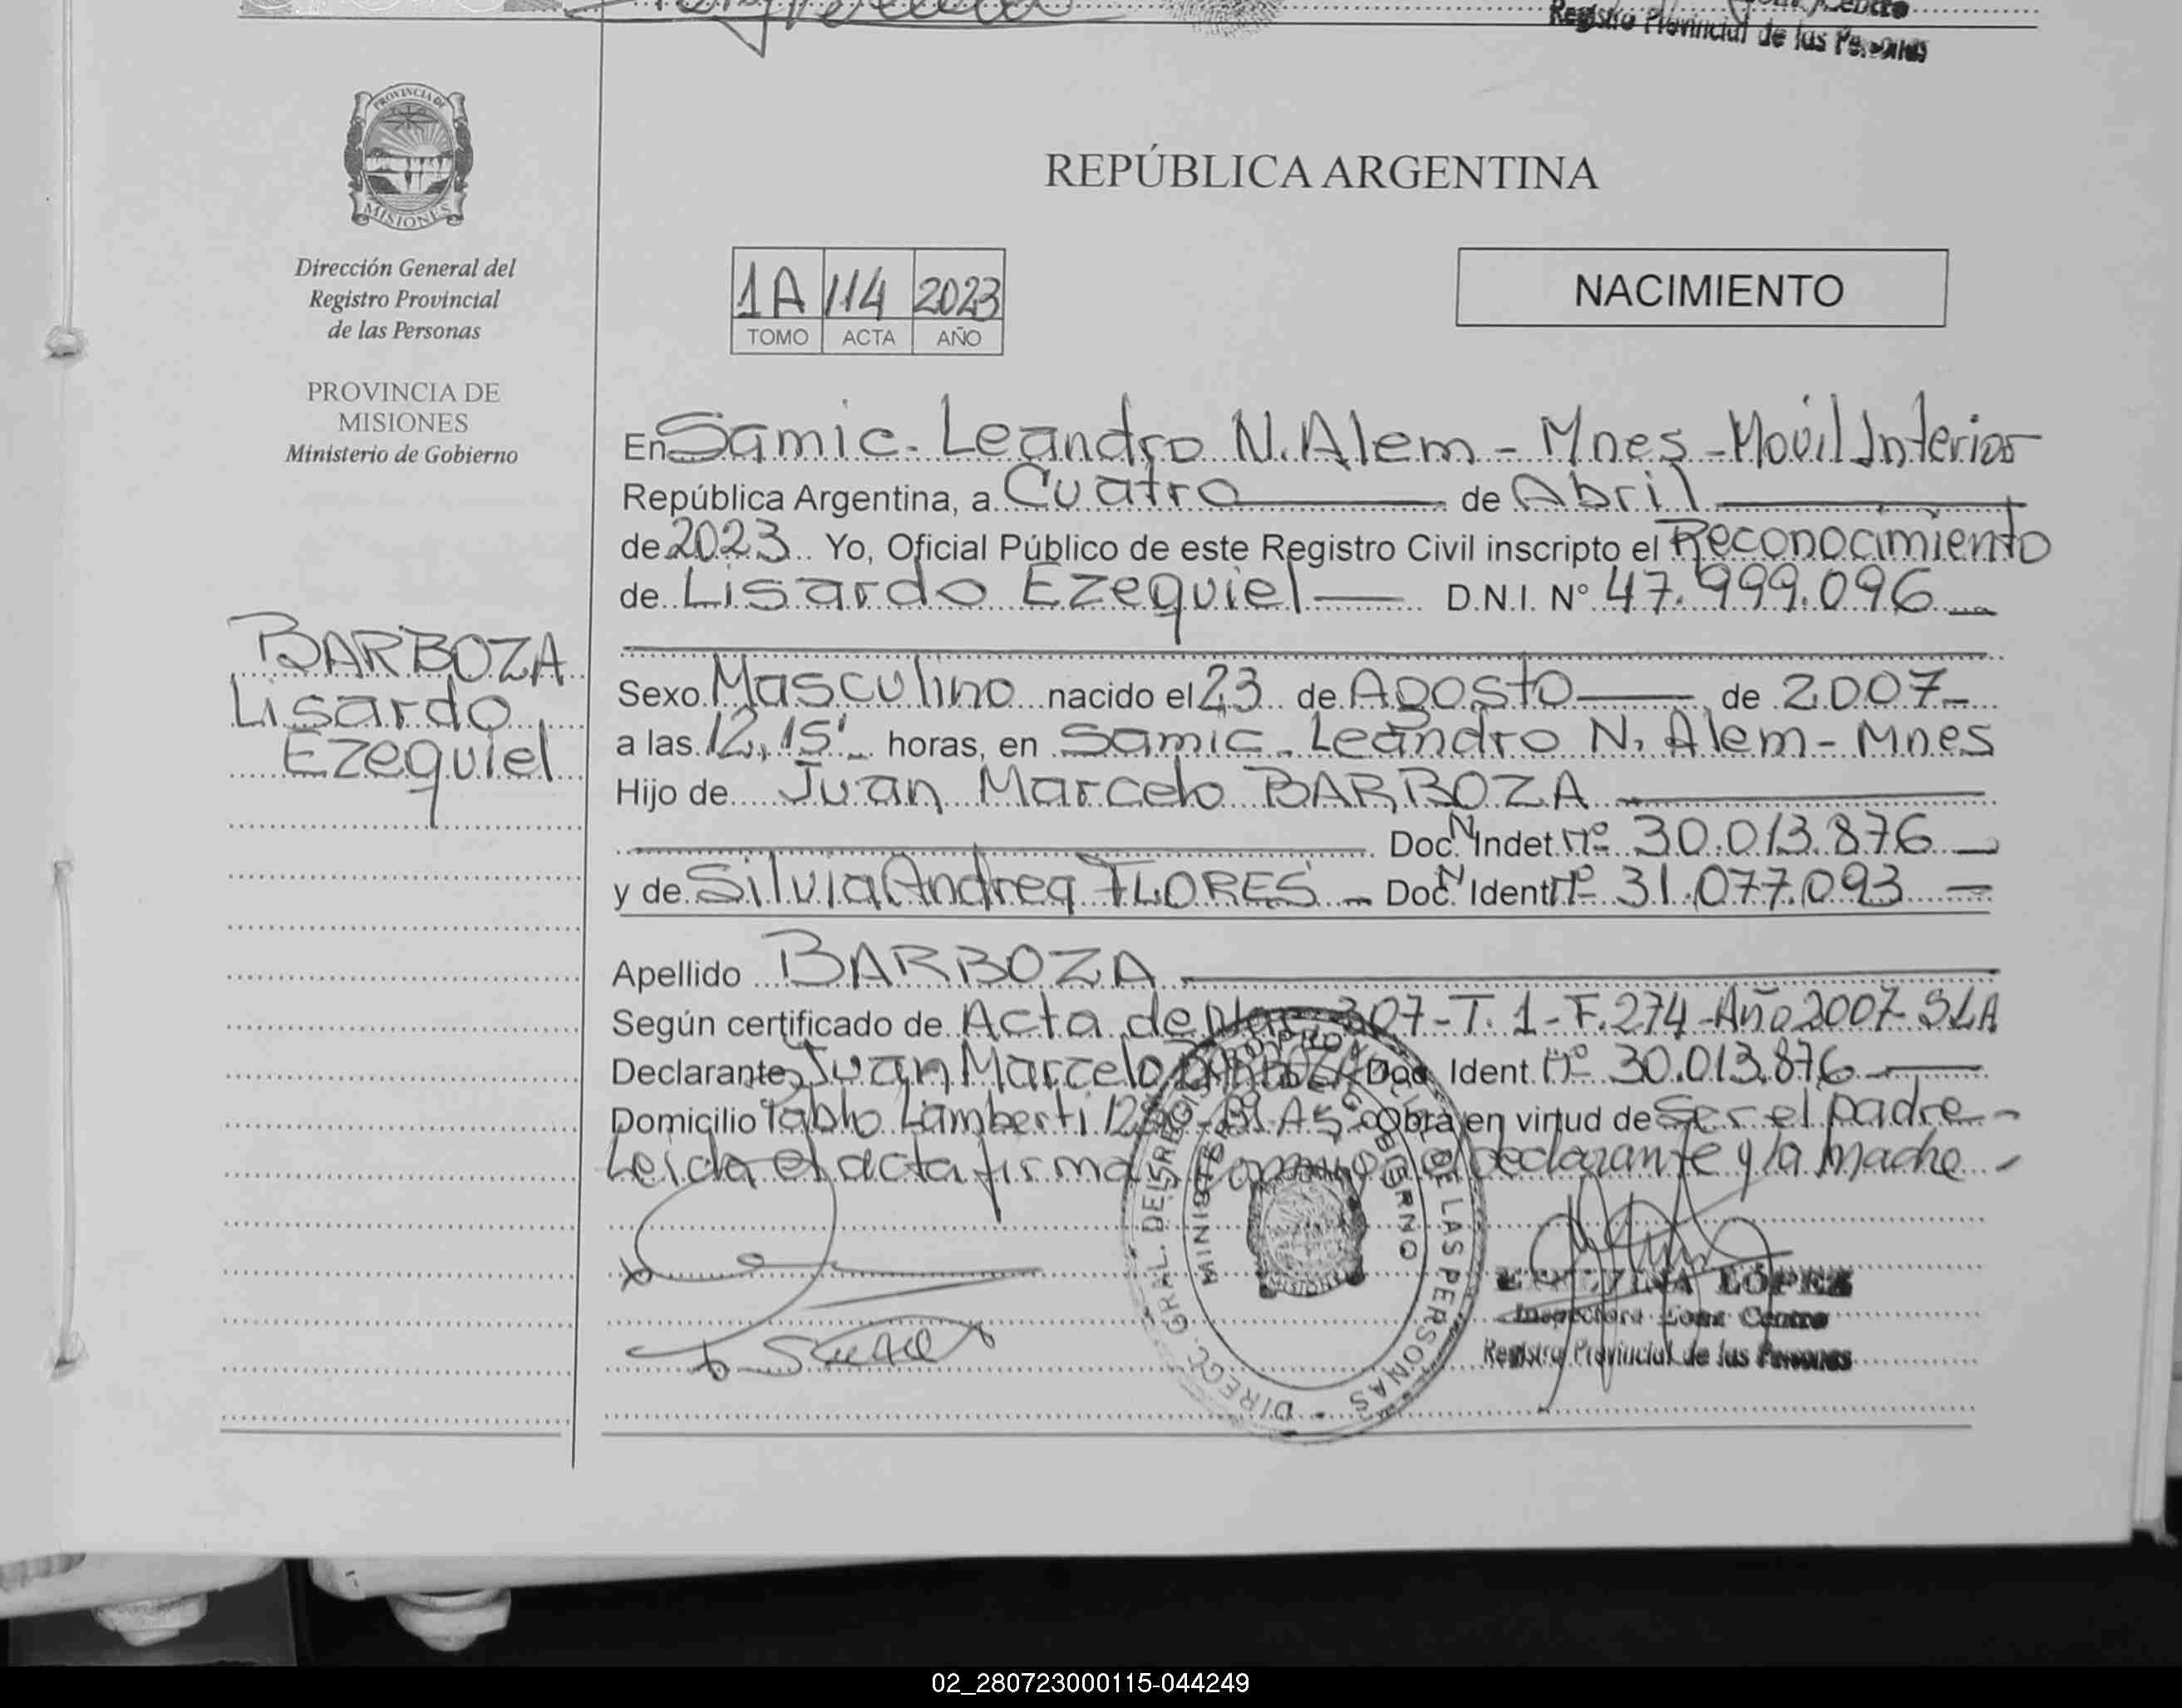 Registro Provincial de las Personas
PROVINCIA DE
MISIONES
Dirección General del
Registro Provincial
de las Personas
PROVINCIA DE
MISIONES
Ministerio de Gobierno
BARBOZA
Lisardo
Ezequiel
REPÚBLICA ARGENTINA
1A 114 2023
TOMO ACTA AÑO
NACIMIENTO
En Samic - Leandro N. Alem - Mnes - Movil Interior
República Argentina, a Cuatro de Abril
de 2023 Yo, Oficial Público de este Registro Civil inscripto el Reconocimiento
de Lisardo Ezequiel D.N.I. N° 47.999.096
Sexo Masculino nacido el 23 de Agosto de 2007
a las 12,15' horas, en Samic - Leandro N. Alem - Mnes
Hijo de Juan Marcelo BARBOZA
Doc. N Indet. Nº 30.013.876
y de Silvia Andrea FLORES - Doc. N Ident. Nº 31.077.093
Apellido BARBOZA
Según certificado de Acta de 307 - T. 1 - F. 274 - Año 2007 - SLA
Declarante Juan Marcelo BARBOZA Doc. Ident. Nº 30.013.876
Domicilio Pablo Lamberti Bs As Obra en virtud de Ser el padre -
Leida el acta firma el declarante y la madre -
DIRECC. GRAL. DEL REGISTRO PROVINCIAL DE LAS PERSONAS
MINISTERIO DE GOBIERNO
MISIONES
LÓPEZ
Inspectora Zona Centro
Registro Provincial de las Personas
02_280723000115-044249